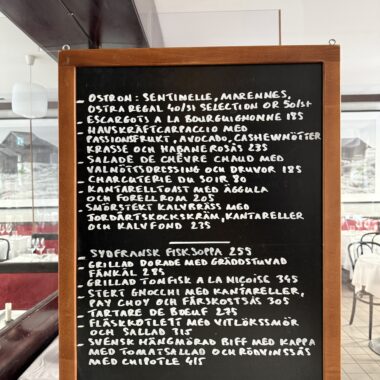 - OSTRON: SENTINELLE, MARENNES,
OSTRA REGAL 40/ST SELECTION OR 50/ST
- ESCARGOTS A LA BOURGUIGNONNE 185
- HAVSKRÄFTCARPACCIO MED
PASSIONSFRUKT, AVOCADO, CASHEWNÖTTER
KRASSE OCH HABANEROSÅS 235
- SALADE DE CHÈVRE CHAUD MED
VALNÖTTSDRESSING OCH DRUVOR 185
- CHARCUTERIE DU SOIR 80
- KANTARELLTOAST MED ÄGGULA
OCH FORELLROM 205
- SMÖRSTEKT KALVBRÄSS MED
JORDÄRTSKOCKSKRÄM, KANTARELLER
OCH KALVFOND 235
- SYDFRANSK FISKSOPPA 255
- GRILLAD DORADE MED GRÄDDSTUVAD
FÄNKÅL 285
- GRILLAD TONFISK A LA NIÇOISE 345
- STEKT GNOCCHI MED KANTARELLER,
PAK CHOY OCH FÄRSKOSTSÅS 305
- TARTARE DE BOEUF 275
- FLÄSKKOTLETT MED VITLÖKSSMÖR
OCH SALLAD 315
- SVENSK HÄNGMÖRAD BIFF MED KAPPA
MED TOMATSALLAD OCH RÖDVINSSÅS
MED CHIPOTLE 415